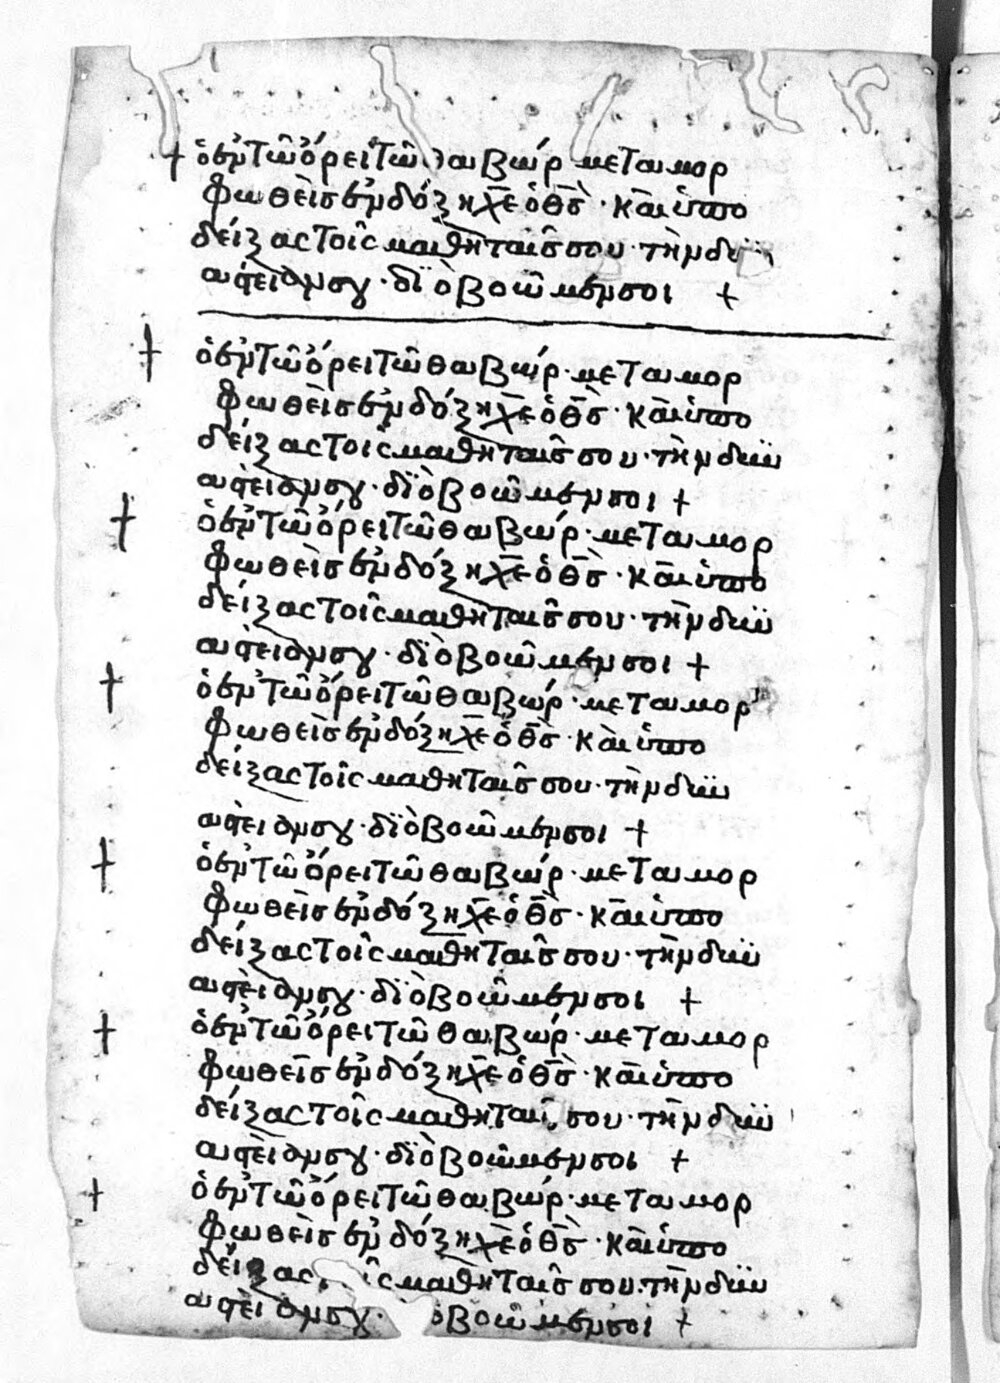 + ὁ ἐν τῶ ὄρει τῶ θαβώρ μεταμορ
φωθεὶς ἐν δόξη χε ὁ θς· καὶ ὑπο
δείξας τοῖς μαθηταῖς σου· τὴν δυν
αστείαν σου· δϊὸ βοῶμεν σοι +
+ ὁ ἐν τῶ ὄρει τῶ θαβώρ· μεταμορ
φωθεὶς ἐν δόξη χε ὁ θς· καὶ ὑπο
δείξας τοῖς μαθηταῖς σου· τὴν δυν
αστείαν σου· δϊὸ βοῶμεν σοι +
+ ὁ ἐν τῶ ὄρει τῶ θαβώρ· μεταμορ
φωθεὶς ἐν δόξη χε ὁ θς· καὶ ὑπο
δείξας τοῖς μαθηταῖς σου· τὴν δυν
αστείαν σου· δϊὸ βοῶμεν σοι +
+ ὁ ἐν τῶ ὄρει τῶ θαβώρ· μεταμορ
φωθεὶς ἐν δόξη χε ὁ θς· καὶ ὑπο
δείξας τοῖς μαθηταῖς σου· τὴν δυν
αστείαν σου· δϊὸ βοῶμεν σοι +
+ ὁ ἐν τῶ ὄρει τῶ θαβώρ· μεταμορ
φωθεὶς ἐν δόξη χε ὁ θς· καὶ ὑπο
δείξας τοῖς μαθηταῖς σου· τὴν δυν
αστείαν σου· δϊὸ βοῶμεν σοι +
+ ὁ ἐν τῶ ὄρει τῶ θαβώρ· μεταμορ
φωθεὶς ἐν δόξη χε ὁ θς· καὶ ὑπο
δείξας τοῖς μαθηταῖς σου· τὴν δυν
αστείαν σου· δϊὸ βοῶμεν σοι +
+ ὁ ἐν τῶ ὄρει τῶ θαβώρ· μεταμορ
φωθεὶς ἐν δόξη χε ὁ θς· καὶ ὑπο
δείξας μαθηταῖς σου· τὴν δυν
αστείαν σου· βοῶμεν σοι +